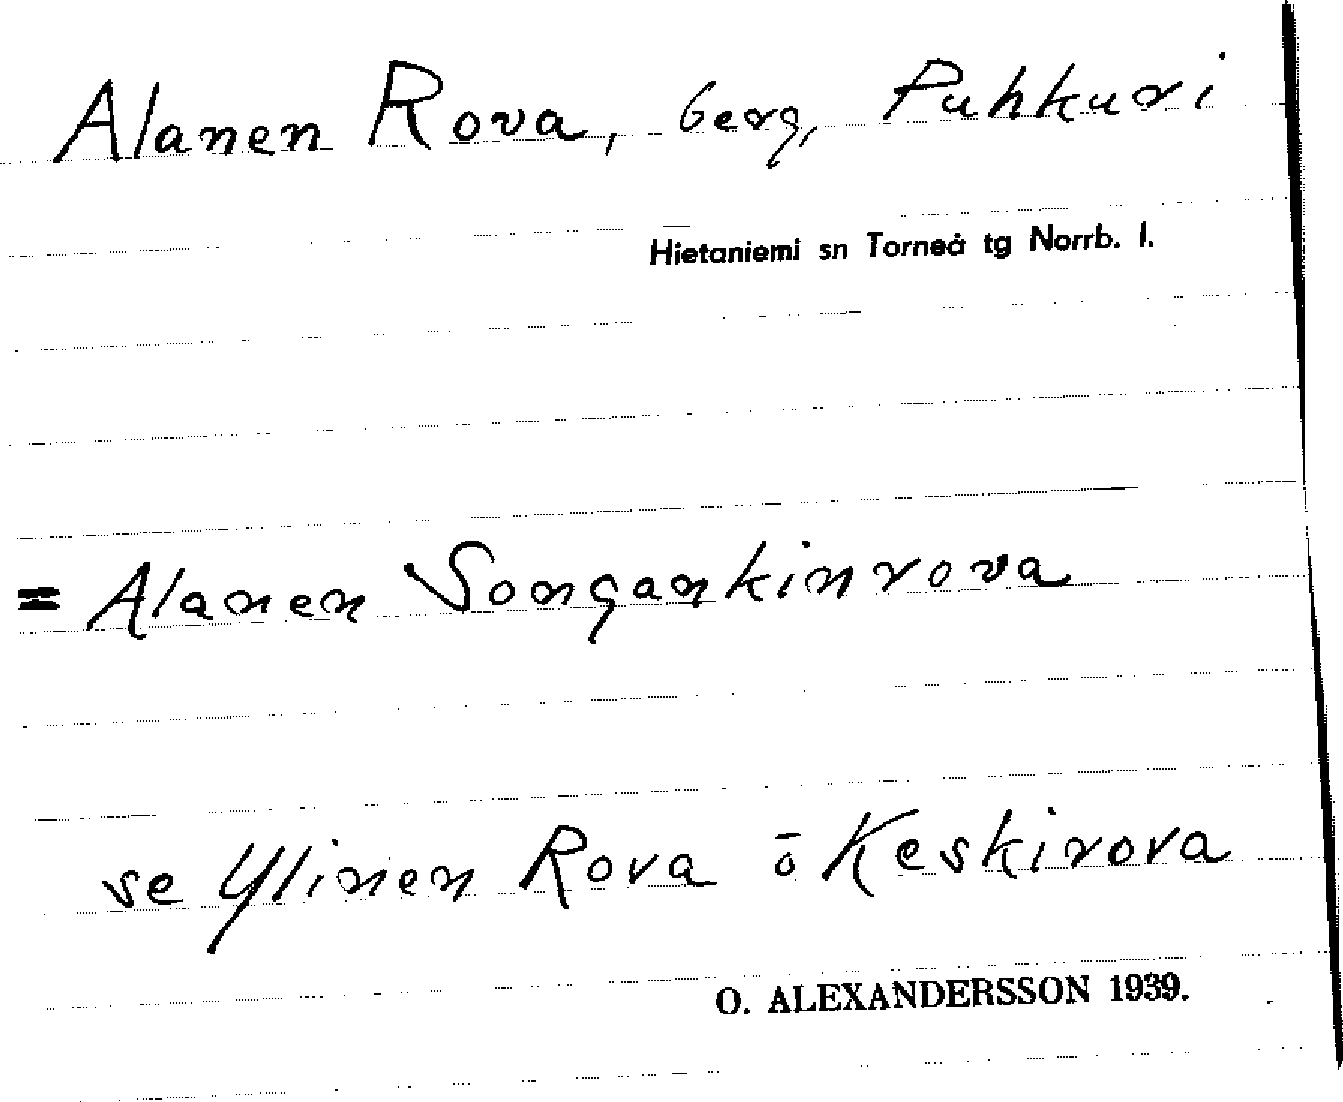 Alanen Rova, berg, Puhkuri
Hietaniemi sn Torneå tg Norrb. l.
= Alanen Songankinrova
se Ylinen Rova ō Keskirova
O. ALEXANDERSSON 1939.